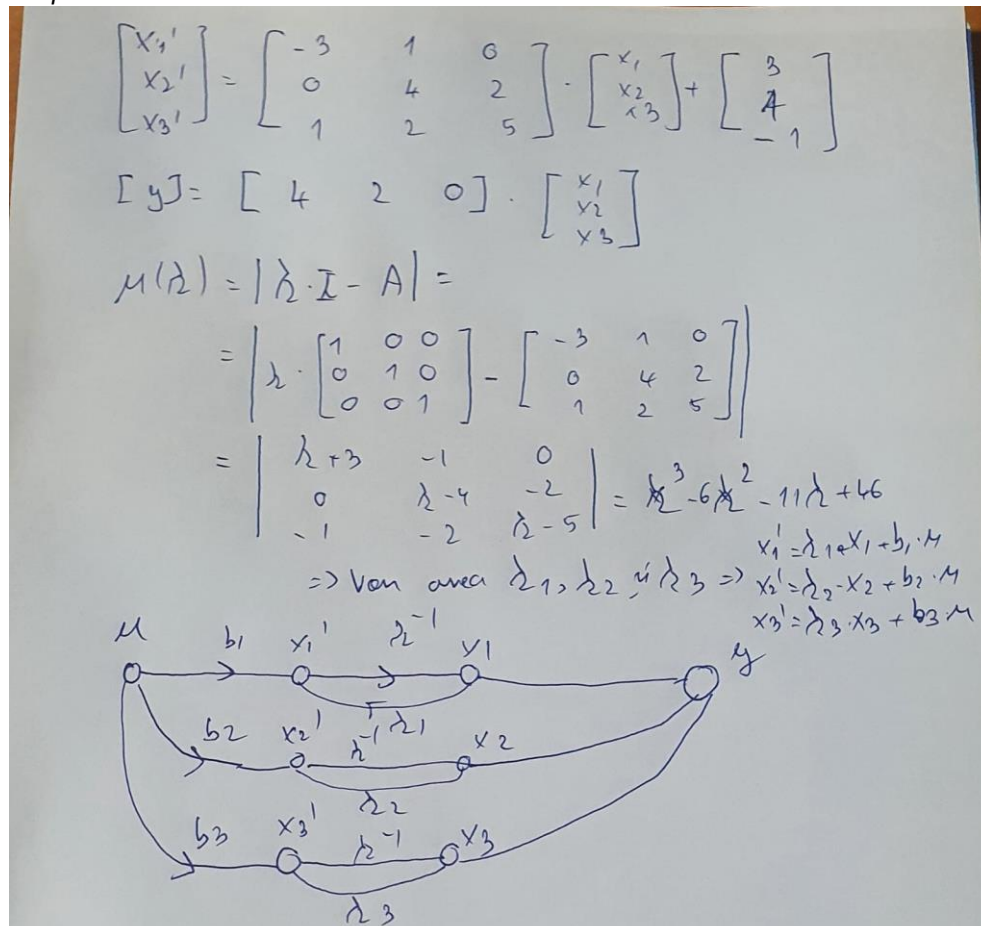 [x1'
x2'
x3'] = [-3 1 0
0 4 2
1 2 5] · [x1
x2
x3] + [3
4
-1]
[y] = [4 2 0] · [x1
x2
x3]
μ(λ) = |λ·I - A| =
= |λ · [1 0 0
0 1 0
0 0 1] - [-3 1 0
0 4 2
1 2 5]|
= |λ+3 -1 0
0 λ-4 -2
-1 -2 λ-5| = λ³-6λ²-11λ+46
=> Vom avea λ1, λ2, și λ3 =>
x1' = λ1·x1 + b1·μ
x2' = λ2·x2 + b2·μ
x3' = λ3·x3 + b3·μ
μ b1 x1' λ⁻¹ x1 y
λ1
b2 x2' λ⁻¹ x2
λ2
b3 x3' λ⁻¹ x3
λ3